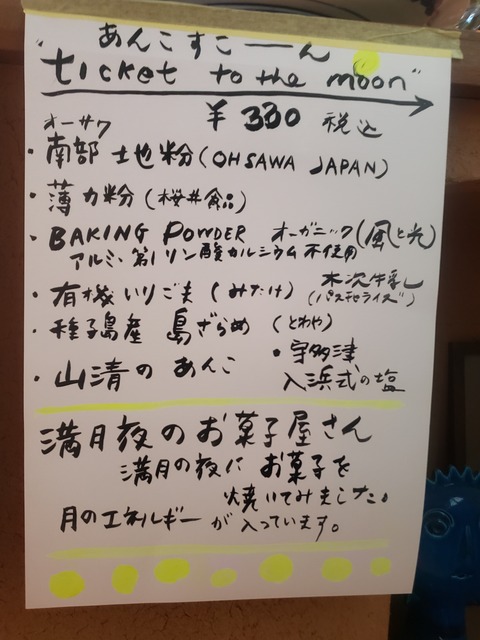 あんこすこーん
"ticket to the moon"
¥330 税込
オーサワ
・南部 地粉(OHSAWA JAPAN)
・薄力粉(桜井食品)
・BAKING POWDER オーガニック(風と光)
アルミ・第1リン酸カルシウム不使用
・有機いりごま(みたけ)
木次牛乳
(パスチャライズ)
・種子島産 島ざらめ (とわや)
・山清のあんこ
・宇多津
入浜式の塩
満月夜のお菓子屋さん
満月の夜に お菓子を
焼いてみました。
月のエネルギーが入っています。